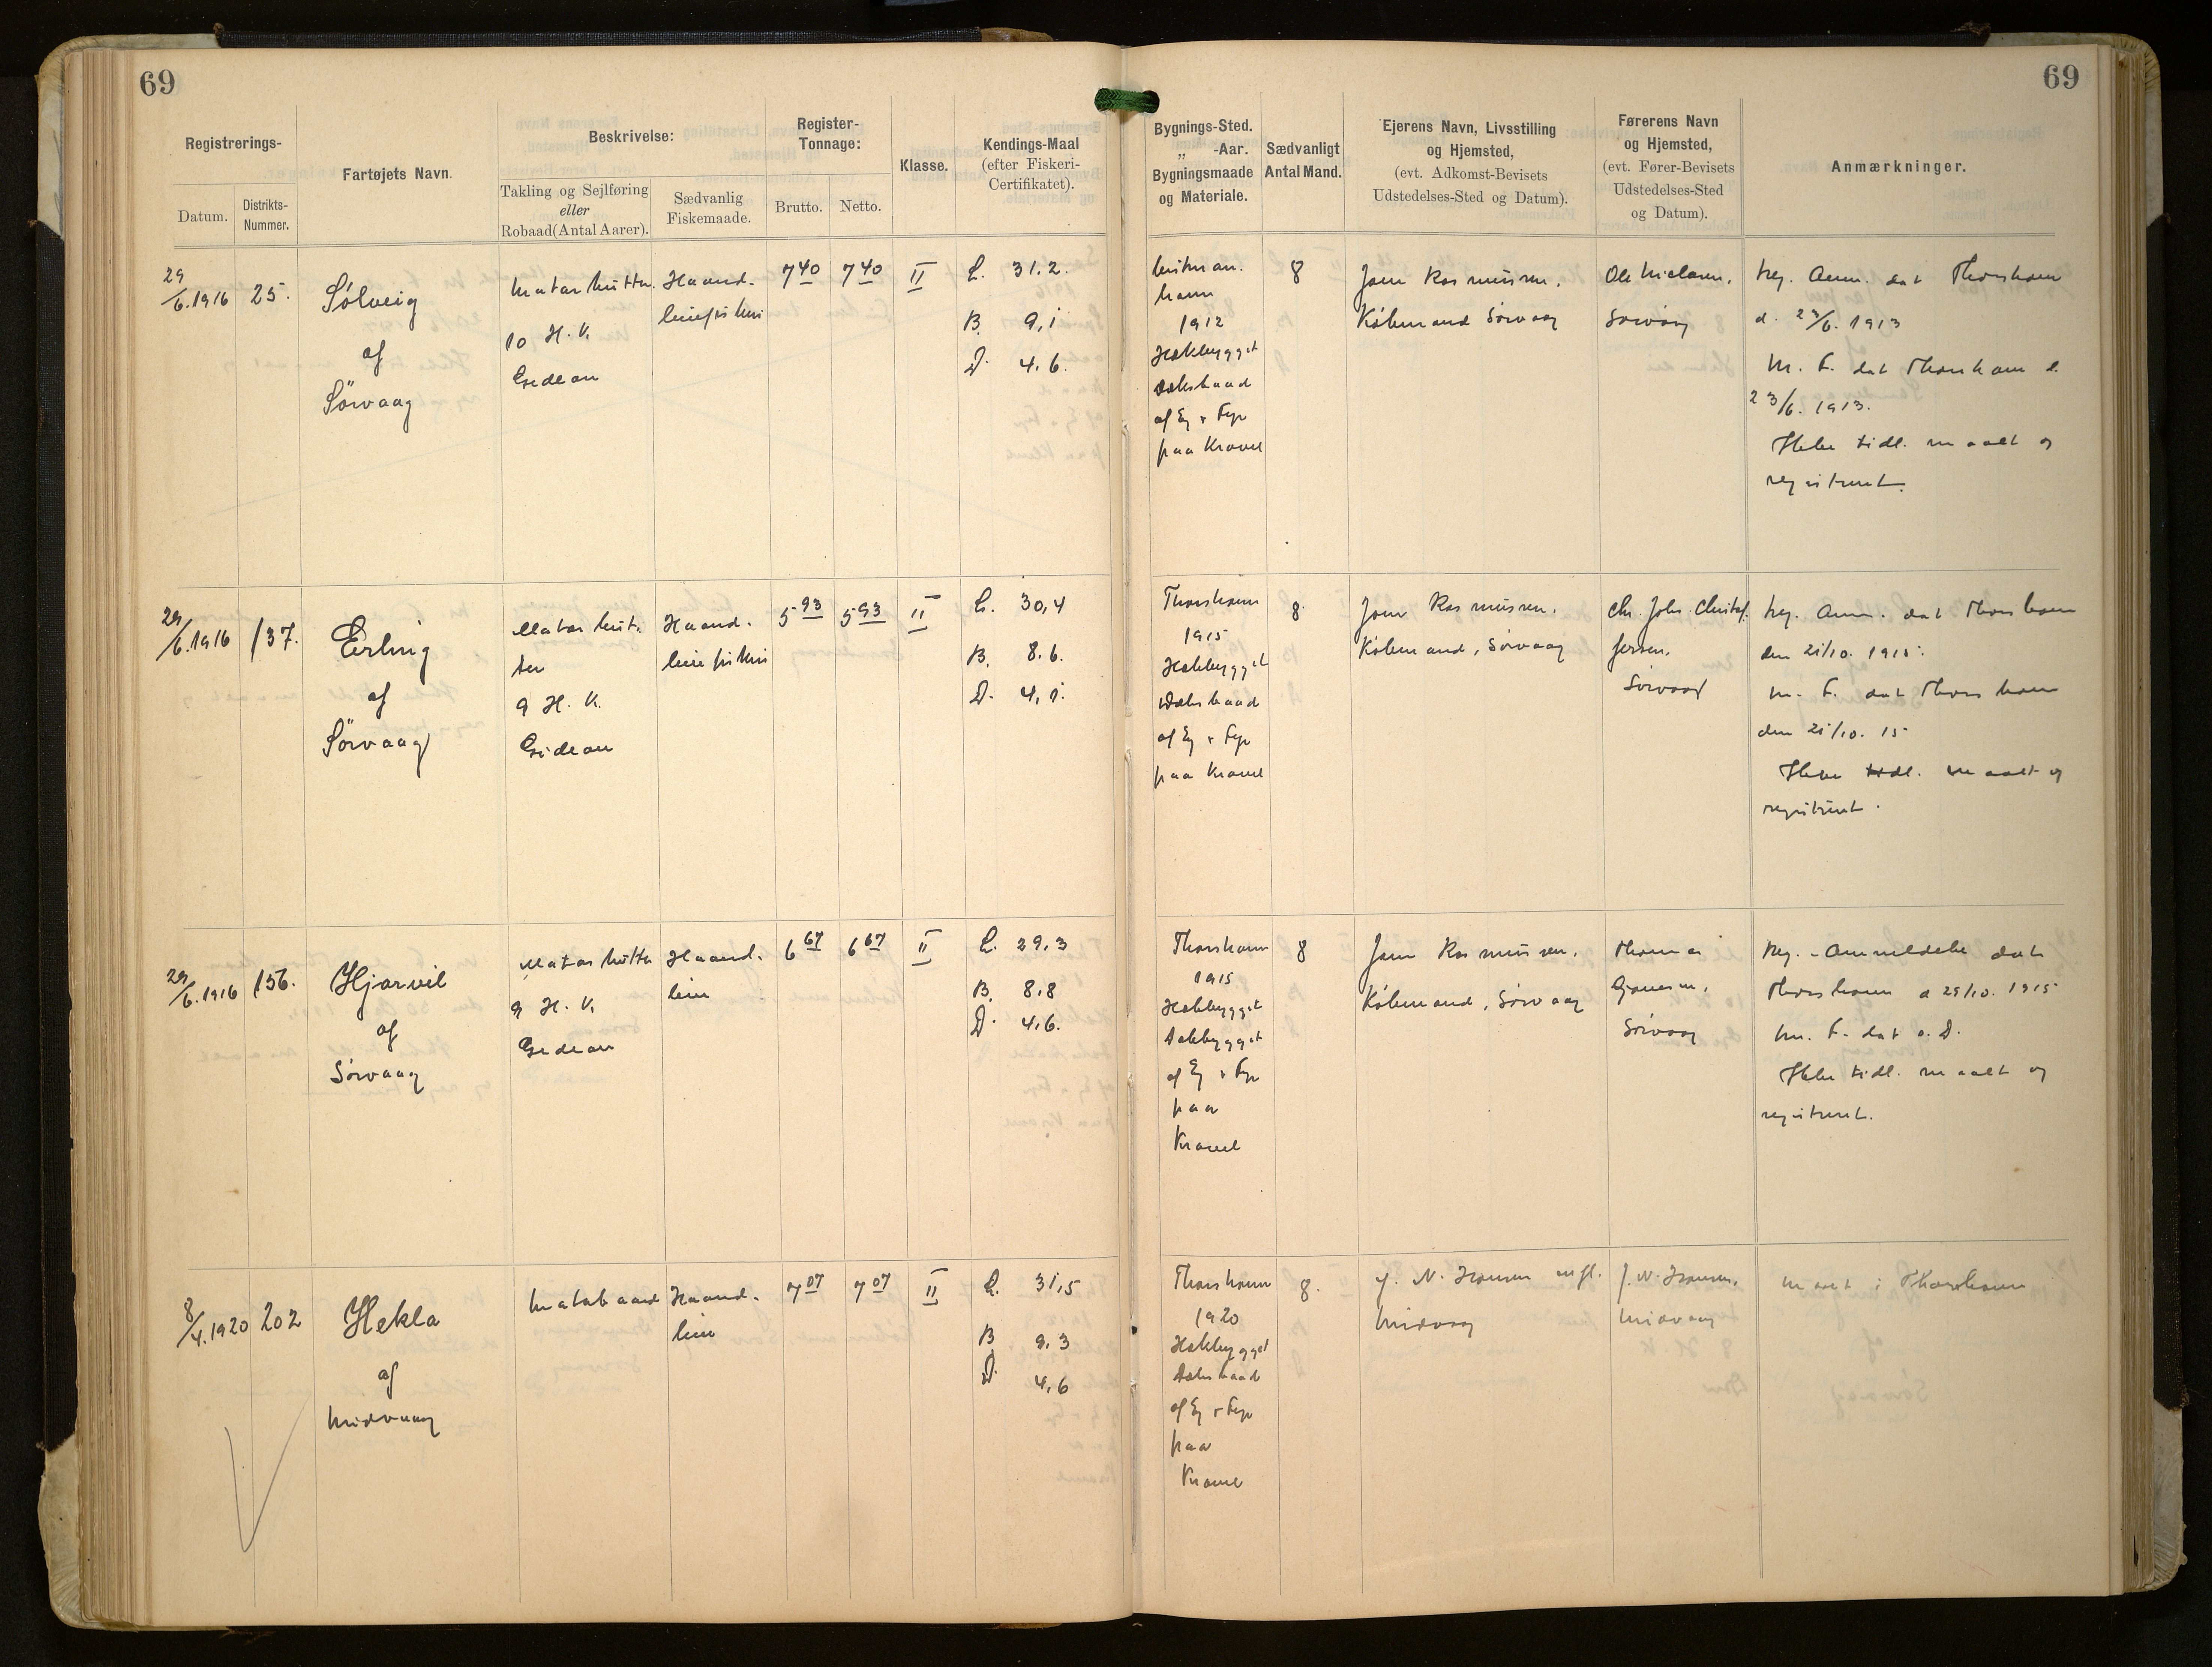 69
69
Registrerings-
Datum.
Distrikts-
Nummer.
Fartøjets Navn.
Beskrivelse:
Takling og Sejlføring
eller
Robaad (Antal Aarer).
Sædvanlig
Fiskemaade.
Register-
Tonnage:
Brutto.
Netto.
Klasse.
Kendings-Maal
(efter Fiskeri-
Certifikatet).
Bygnings-Sted.
„ -Aar.
Bygningsmaade
og Materiale.
Sædvanligt
Antal Mand.
Ejerens Navn, Livsstilling
og Hjemsted,
(evt. Adkomst-Bevisets
Udstedelses-Sted og Datum).
Førerens Navn
og Hjemsted,
(evt. Fører-Bevisets
Udstedelses-Sted
og Datum).
Anmærkninger.
29/6.1916
25.
Sólveig
af
Sörvaag
Motorkutter.
10 H. K.
Gideon
Haand-
linefiskeri
7 40
7 40
II
L. 31.2.
B. 9,1
D. 4.6.
havn
1912
Hækbygget
Dæksbaad
af Eg + Fyr
paa Kravel
8
Joen Rasmussen.
Købmand Sörvaag
Ole Nielsen.
Sörvaag
Reg. Anm. dat Thorshavn
d. 23/6. 1913
M. F. dat Thorshavn d.
23/6. 1913.
tidl. maalt og
registreret.
29/6.1916
137.
Erling
af
Sörvaag
Motorkut-
ter
9 H. K.
Gideon
Haand-
linefiskeri
5 93
5 93
II
L. 30,4
B. 8.6.
D. 4,1.
Thorshavn
1915
Hækbygget
Dæksbaad
af Eg + Fyr
paa Kravel
8
Joen Rasmussen.
Købmand, Sörvaag
Chr. Joh. Christof-
fersen.
Sörvaag
Reg. Anm. dat Thorshavn
den 21/10. 1915.
M. F. dat Thorshavn
den 21/10. 15
tidl. maalt og
registreret.
29/6.1916
156.
Hjarvil
af
Sörvaag
Motorkutter
9 H. K.
Gideon
Haand-
line
6 67
6 67
II
L. 29.3
B. 8,8
D. 4,6.
Thorshavn
1915
Hækbygget
Dækbygget
af Eg + Fyr
paa
Kravel
8
Joen Rasmussen.
Købmand, Sörvaag
Thomas
Sörvaag
Reg. - Anmeldelse dat
Thorshavn d 29/10. 1915
M. F. dat s. D.
tidl. maalt og
registreret.
8/4.1920
202
Hekla
af
Midvaag
Motorbaad
Haand-
line
7 07
7 07
II
L. 31,5
B 9.3
D. 4,6
Thorshavn
1920
Hækbygget
Dæksbaad
af Eg + Fyr
paa
Kravel
8.
J. N. Hansen mfl.
Midvaag
J. N. Hansen.
Midvaag
Maalt i Thorshavn